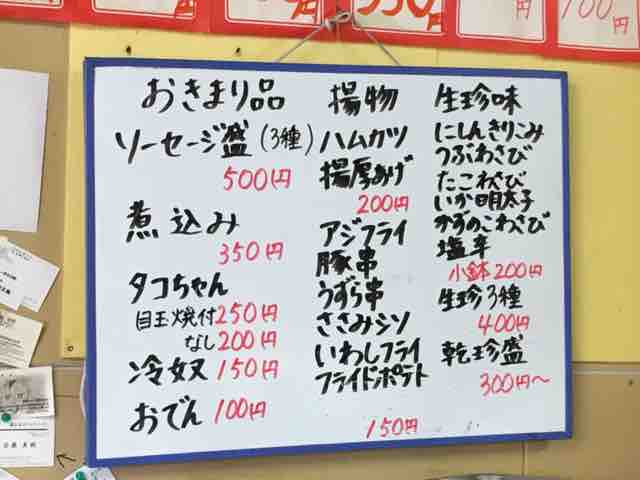 おきまり品
ソーセージ盛(3種)
500円
煮込み
350円
タコちゃん
目玉焼付250円
なし200円
冷奴150円
おでん100円
揚物
ハムカツ
揚厚あげ
200円
アジフライ
豚串
うずら串
ささみシソ
いわしフライ
フライドポテト
150円
生珍味
にしんきりこみ
つぶわさび
たこわさび
いか明太子
かずのこわさび
塩辛
小鉢200円
生珍3種
400円
乾珍盛
300円～
100円